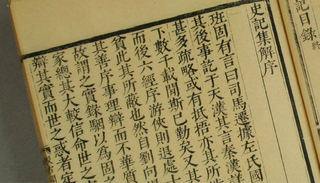 記目錄 終
史記集解序
班固有言曰司馬遷據左氏國
其後事訖于天漢其言秦漢詳
甚多疏略或有抵捂亦其所
下數千載間斯已勤矣又其
而後六經序游俠則退處士
貧此其所蔽也然自劉向
其善序事理辯而不華質
故謂之實錄駰以為固之
家總其大較信命世之
辯其實而世之或者